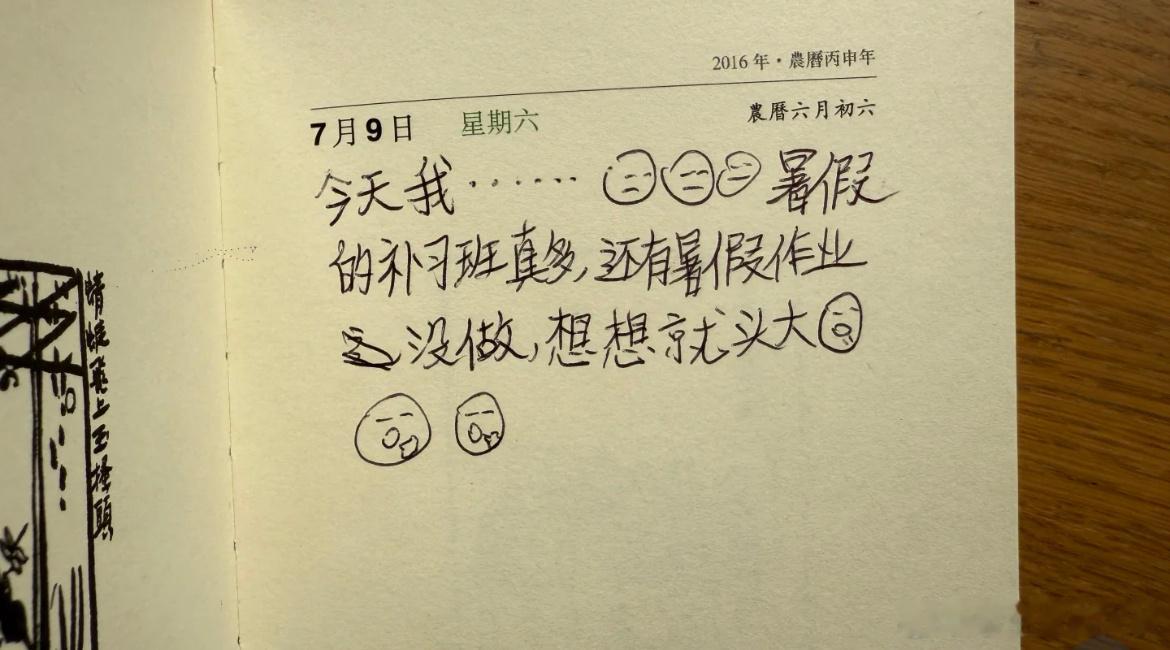 2016 年·農曆丙申年
7月9日 星期六 農曆六月初六
今天我…… 暑假
的补习班真多,还有暑假作业
没做,想想就头大
蜻蜓飛上玉搔頭